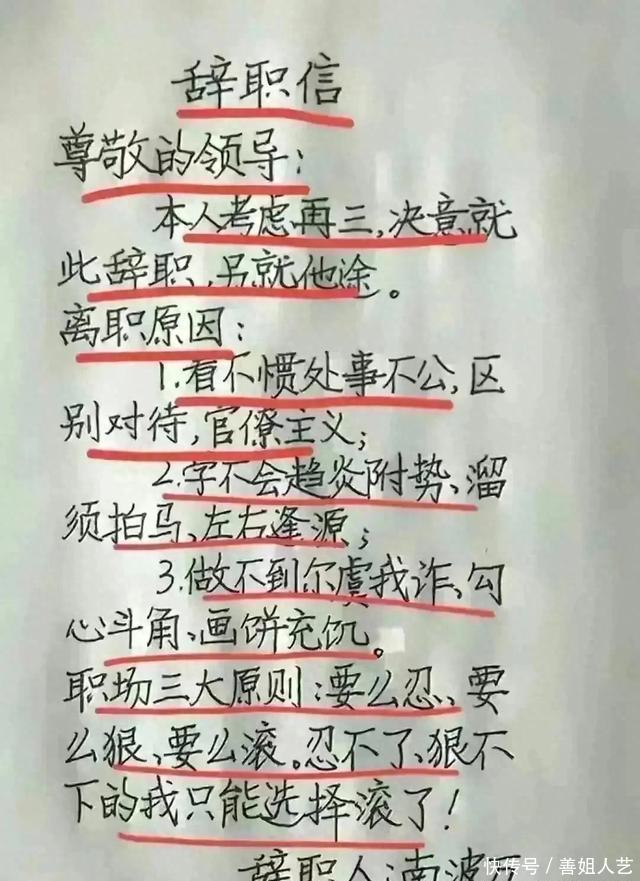 辞职信
尊敬的领导:
本人考虑再三,决意就
此辞职,另就他途。
离职原因:
1.看不惯处事不公,区
别对待,官僚主义;
2.字不会趋炎附势、溜
须拍马、左右逢源;
3.做不到尔虞我诈、勾
心斗角、画饼充饥。
职场三大原则:要么忍、要
么狠、要么滚。忍不了、狠不
下的我只能选择滚了!
辞职人:南波
快传号/善姐人艺